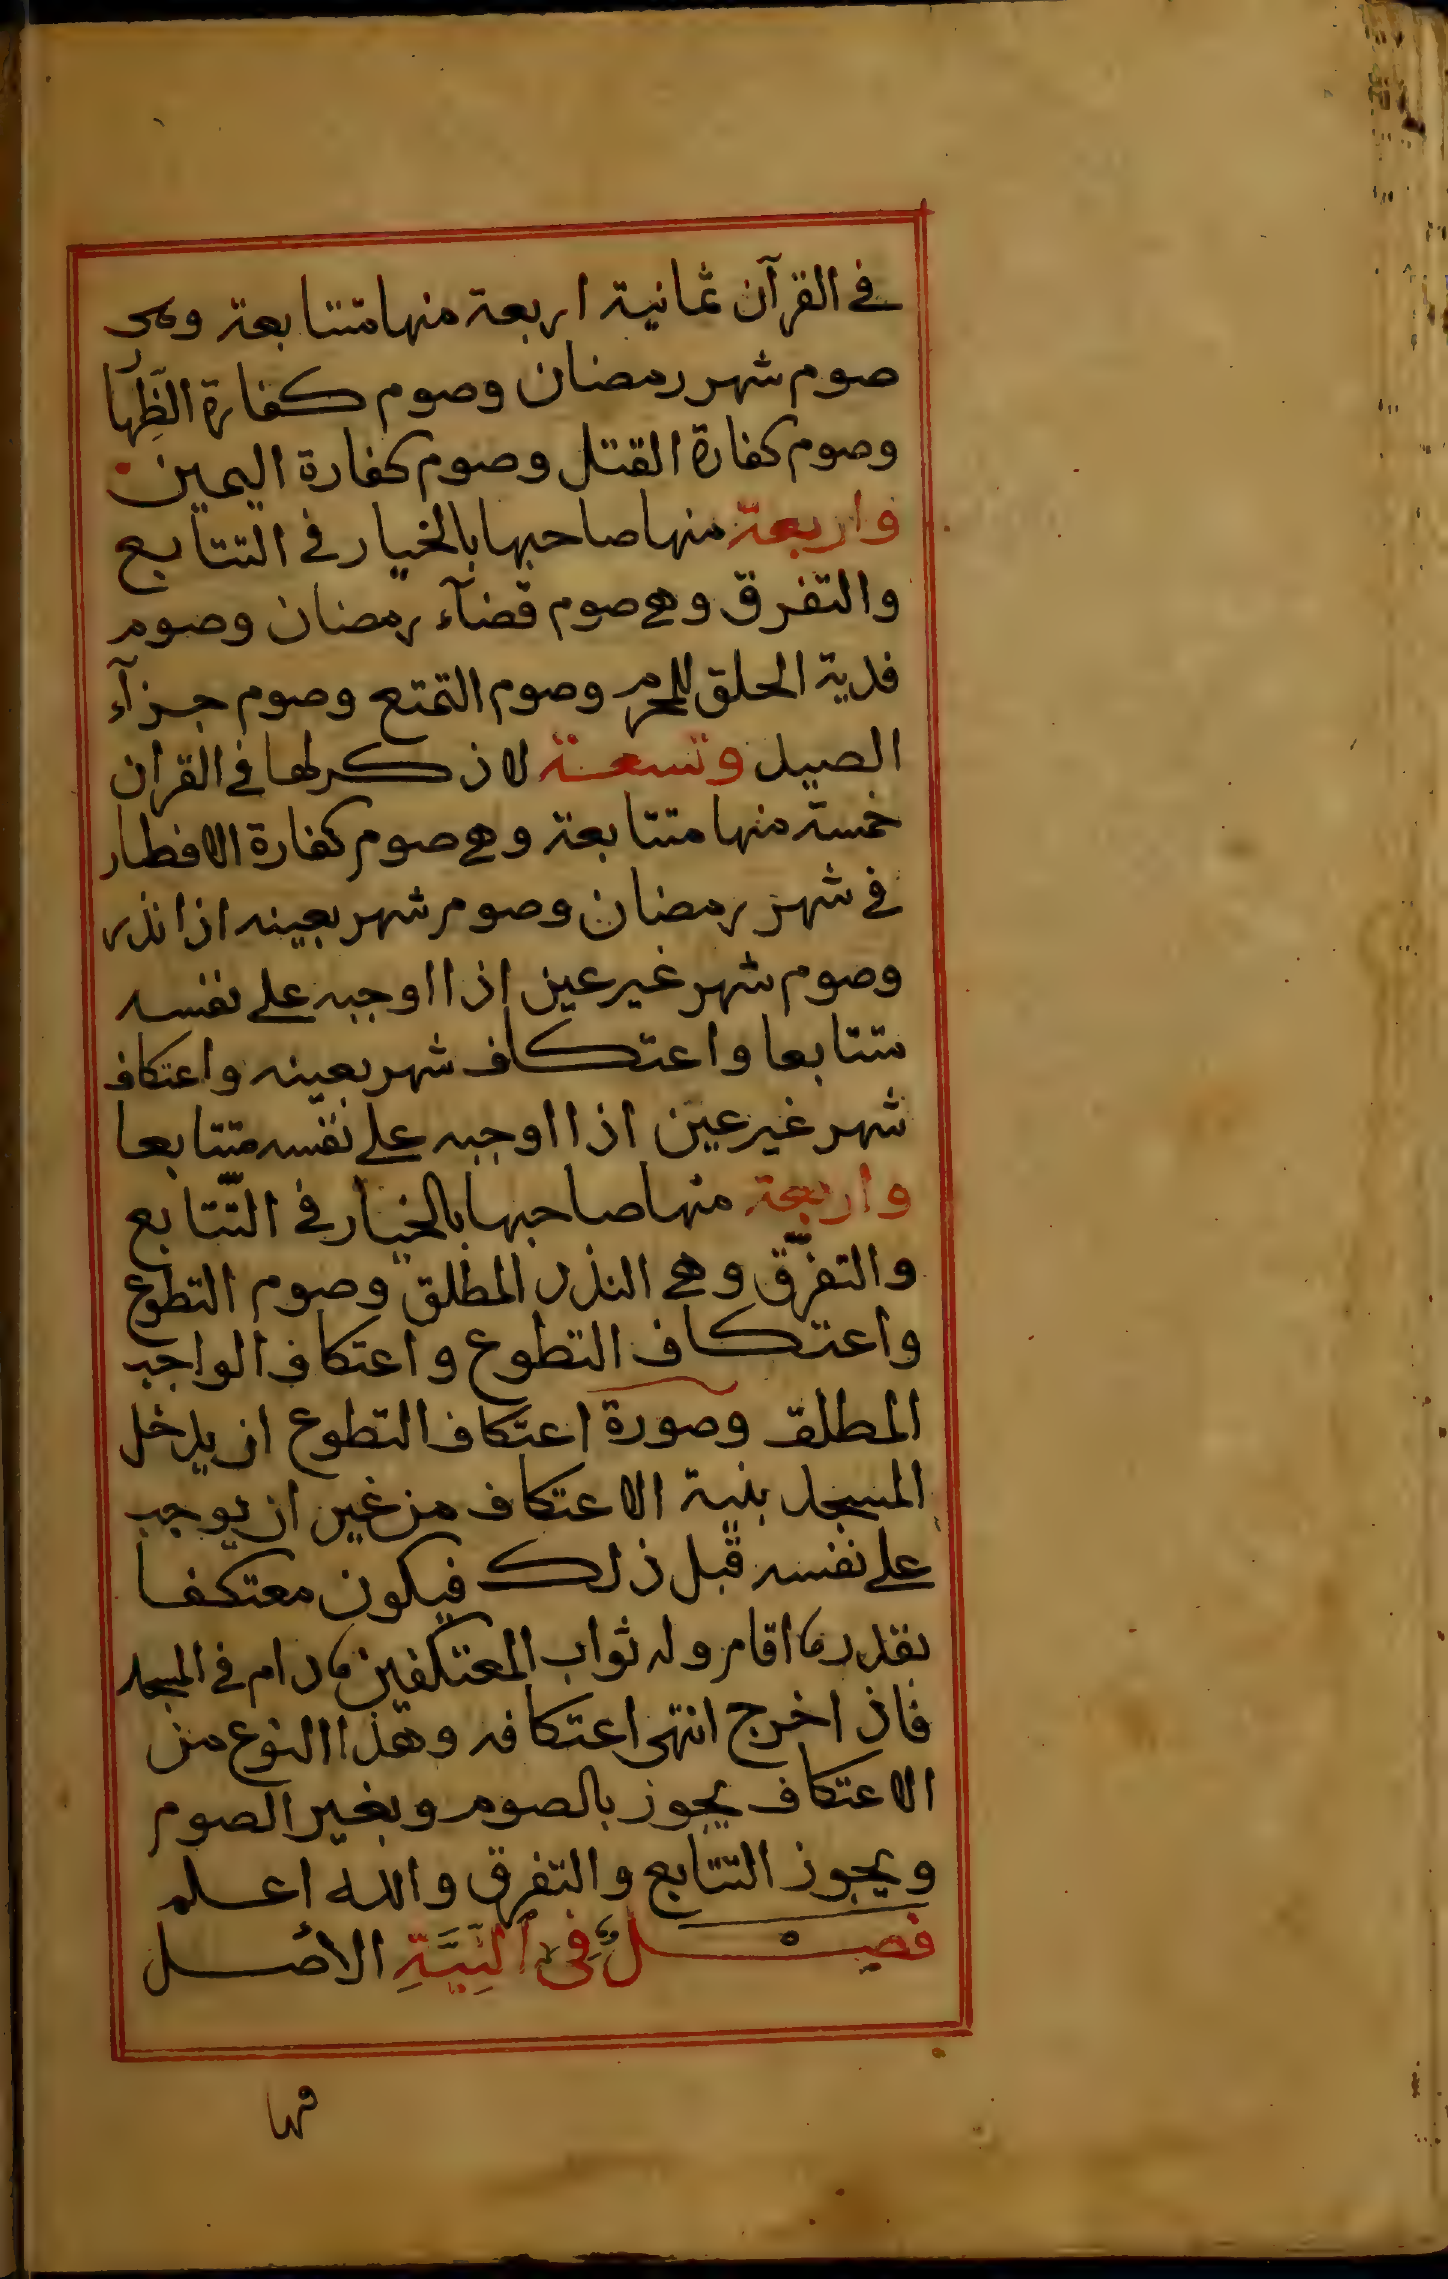 في القرآن ثمانية اربعة منها متتابعة وهي
صوم شهر رمضان وصوم كفارة الظِّهَار
وصوم كفارة القتل وصوم كفارة اليمين
واربعة منها صاحبها بالخيار في التتابع
والتفرق وهي صوم قضآء رمضان وصوم
فدية الحلق للمحرم وصوم التمتع وصوم جزآء
الصيد وتسعة لا ذكر لها في القرآن
خمسة منها متتابعة وهي صوم كفارة الافطار
في شهر رمضان وصوم شهر بعينه اذا نذر
وصوم شهر غير عين اذا اوجبه على نفسه
متتابعا واعتكاف شهر بعينه واعتكاف
شهر غير عين اذا اوجبه على نفسه متتابعا
واربعة منها صاحبها بالخيار في التّتابع
والتفرّق وهي النذر المطلق وصوم التطوع
واعتكاف التطوع واعتكاف الواجب
المطلق وصورة اعتكاف التطوع ان يدخل
المسجد بنية الاعتكاف من غير ان يوجب
على نفسه قبل ذلك فيكون معتكفا
بقدر ما اقام وله ثواب المعتكفين مادام في المسجد
فاذا خرج انتهى اعتكافه وهذا النوع من
الاعتكاف يجوز بالصوم وبغير الصوم
ويجوز التتابع والتفرق والله اعلم
فصل في النِيَّةِ الاصل
فيها